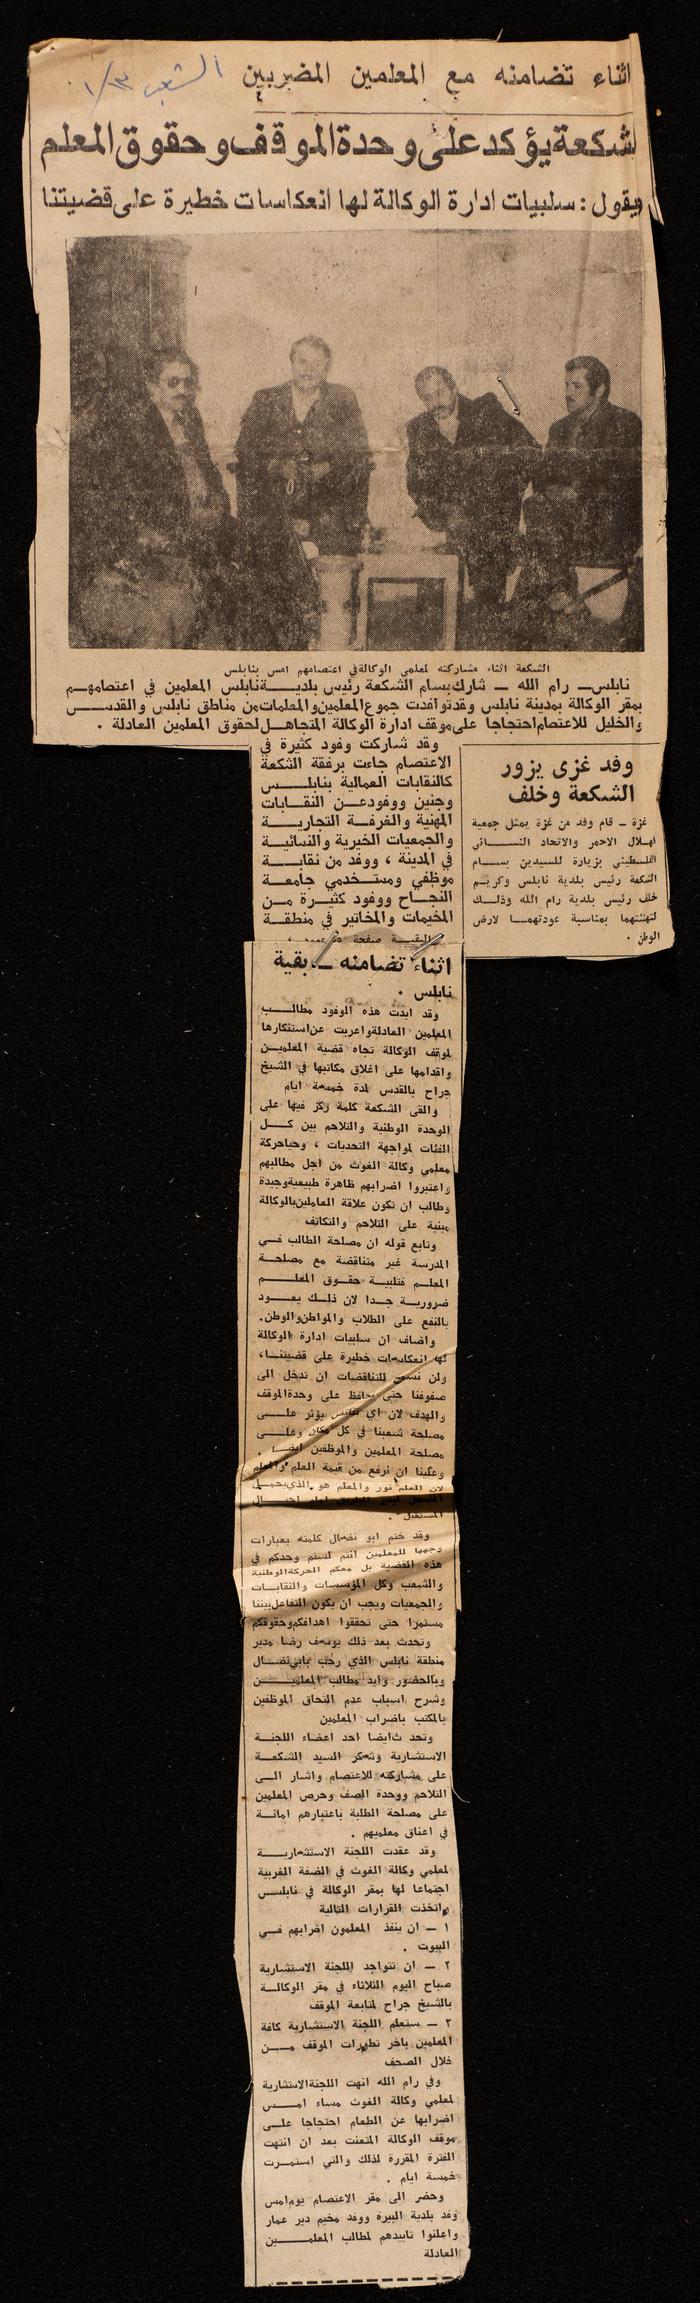 الشعب ١/١٣
اثناء تضامنه مع المعلمين المضربين
الشكعة يؤكد على وحدة الموقف وحقوق المعلم
ويقول : سلبيات ادارة الوكالة لها انعكاسات خطيرة على قضيتنا
الشكعة اثناء مشاركته لمعلمي الوكالة في اعتصامهم امس بنابلس
نابلس ـ رام الله ـ شارك بسام الشكعة رئيس بلدية نابلس المعلمين في اعتصامهم
بمقر الوكالة بمدينة نابلس وقد توافدت جموع المعلمين والمعلمات من مناطق نابلس والقدس
والخليل للاعتصام احتجاجا على موقف ادارة الوكالة المتجاهل لحقوق المعلمين العادلة .
وقد شاركت وفود كثيرة في
الاعتصام جاءت برفقة الشكعة
كالنقابات العمالية بنابلس
وجنين ووفود عن النقابات
المهنية والغرفة التجارية
والجمعيات الخيرية والنسائية
في المدينة ، ووفد من نقابة
موظفي ومستخدمي جامعة
النجاح ووفود كثيرة من
المخيمات والمخاتير في منطقة
البقية صفحة
وفد غزى يزور
الشكعة وخلف
غزة ـ قام وفد من غزة يمثل جمعية
الهلال الاحمر والاتحاد النسائي
الفلسطيني بزيارة للسيدين بسام
الشكعة رئيس بلدية نابلس وكريم
خلف رئيس بلدية رام الله وذلك
لتهنئتهما بمناسبة عودتهما لارض
الوطن .
اثناء تضامنه ـ بقية
نابلس .
وقد ايدت هذه الوفود مطالب
المعلمين العادلة واعربت عن استنكارها
لموقف الوكالة تجاه قضية المعلمين
واقدامها على اغلاق مكاتبها في الشيخ
جراح بالقدس لمدة خمسة ايام
والقى الشكعة كلمة ركز فيها على
الوحدة الوطنية والتلاحم بين كل
الفئات لمواجهة التحديات ، وحيا حركة
معلمي وكالة الغوث من اجل مطالبهم
واعتبروا اضرابهم ظاهرة طبيعية وجيدة
وطالب ان تكون علاقة العاملين بالوكالة
مبنية على التلاحم والتكاتف
وتابع قوله ان مصلحة الطالب في
المدرسة غير متناقضة مع مصلحة
المعلم فتلبية حقوق المعلم
ضرورية جدا لان ذلك يعود
بالنفع على الطلاب والمواطن والوطن.
واضاف ان سلبيات ادارة الوكالة
لها انعكاسات خطيرة على قضيتنا،
ولن نسمح للتناقضات ان تدخل الى
صفوفنا حتى نحافظ على وحدة الموقف
والهدف لان اي تناقض يؤثر على
مصلحة شعبنا في كل مكان وعلى
مصلحة المعلمين والموظفين ايضا .
وعلينا ان نرفع من قيمة العلم والمعلم
لان العلم نور والمعلم هو الذي يحمل
المشعل لينير الطريق امام اجيال
المستقبل .
وقد ختم ابو نضال كلمته بعبارات
وجهها للمعلمين انتم لستم وحدكم في
هذه القضية بل معكم الحركة الوطنية
والشعب وكل المؤسسات والنقابات
والجمعيات ويجب ان يكون التفاعل بيننا
مستمرا حتى تحققوا اهدافكم وحقوقكم
وتحدث بعد ذلك يوسف رضا مدير
منطقة نابلس الذي رحب بابي نضال
وبالحضور وايد مطالب المعلمين
وشرح اسباب عدم التحاق الموظفين
بالمكتب باضراب المعلمين
وتحدث ايضا احد اعضاء اللجنة
الاستشارية وشكر السيد الشكعة
على مشاركته للاعتصام واشار الى
التلاحم ووحدة الصف وحرص المعلمين
على مصلحة الطلبة باعتبارهم امانة
في اعناق معلميهم .
وقد عقدت اللجنة الاستشارية
لمعلمي وكالة الغوث في الضفة الغربية
اجتماعا لها بمقر الوكالة في نابلس
واتخذت القرارات التالية
١ ـ ان ينفذ المعلمون اضرابهم في
البيوت .
٢ ـ ان تتواجد اللجنة الاستشارية
صباح اليوم الثلاثاء في مقر الوكالة
بالشيخ جراح لمتابعة الموقف
٣ ـ ستعلم اللجنة الاستشارية كافة
المعلمين باخر تطورات الموقف من
خلال الصحف
وفي رام الله انهت اللجنة الاستشارية
لمعلمي وكالة الغوث مساء امس
اضرابها عن الطعام احتجاجا على
موقف الوكالة المتعنت بعد ان انتهت
الفترة المقررة لذلك والتي استمرت
خمسة ايام .
وحضر الى مقر الاعتصام يوم امس
وفد بلدية البيرة ووفد مخيم دير عمار
واعلنوا تاييدهم لمطالب المعلمين
العادلة